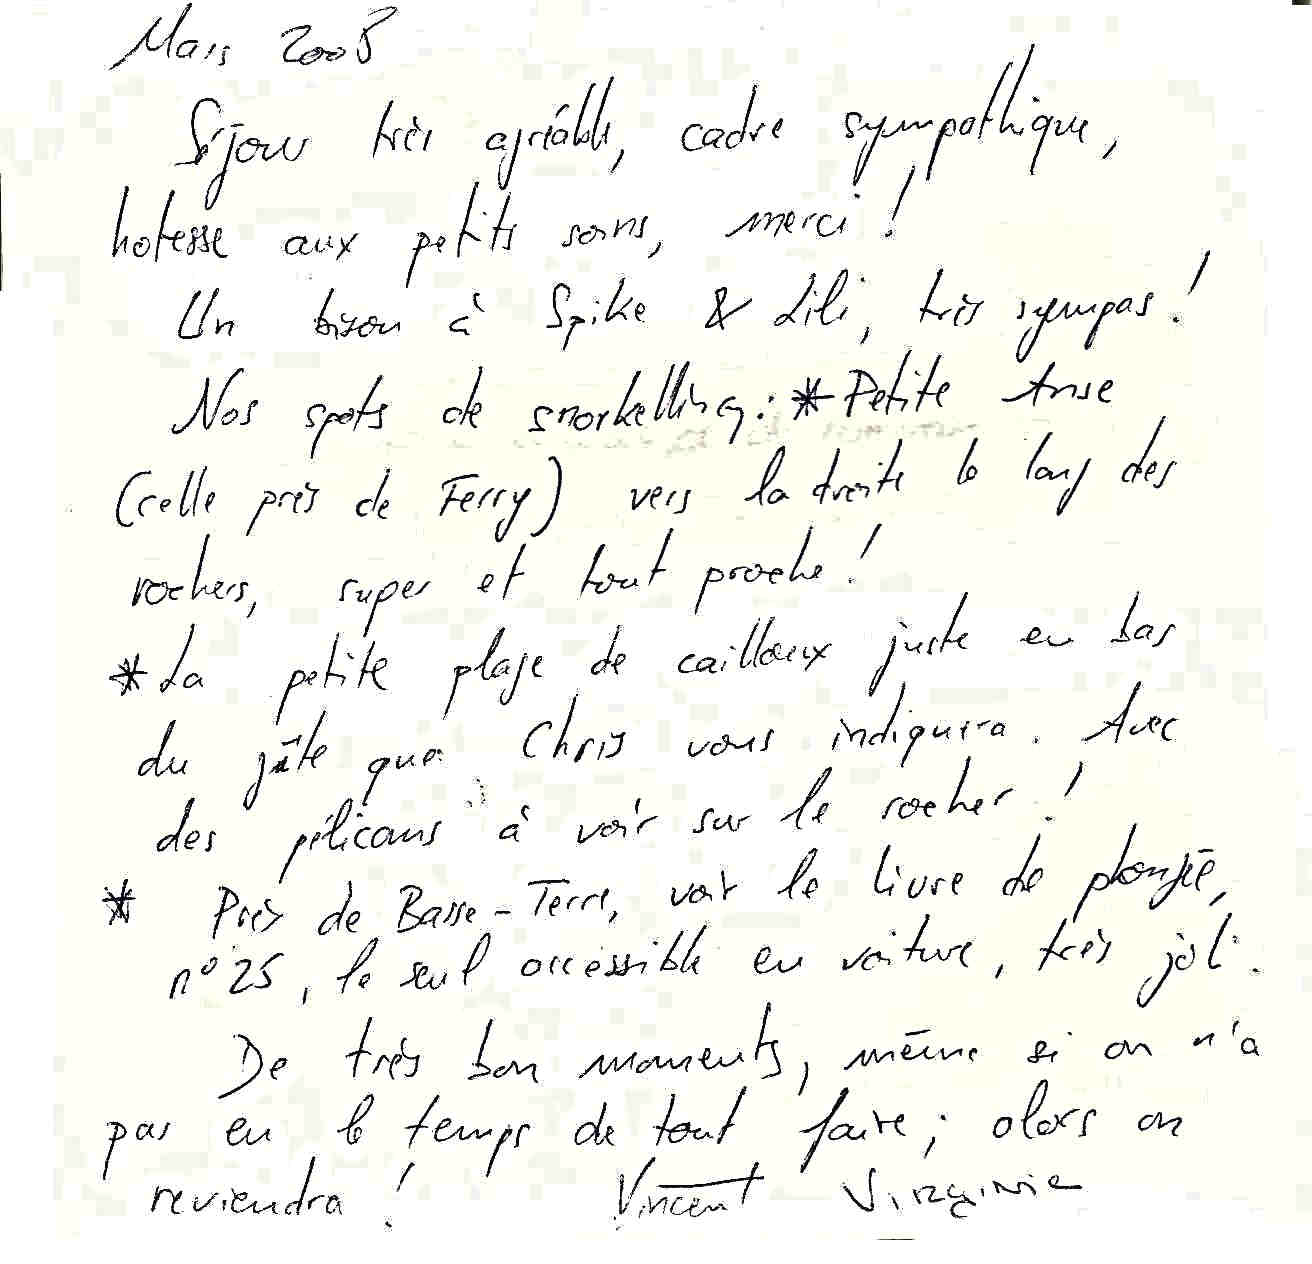 Mars 2008
Séjour très agréable, cadre sympathique,
hotesse aux petits soins, merci !
Un bisou à Spike & Lili, très sympas !
Nos spots de snorkelling : * Petite Anse
(celle près de Ferry) vers la droite le long des
rochers, super et tout proche !
* La petite plage de cailloux juste en bas
du gîte que Chris vous indiquera. Avec
des pélicans à voir sur le rocher !
* Près de Basse-Terre, voir le livre de plongée,
n° 25, le seul accessible en voiture, très joli.
De très bon moments, même si on n'a
pas eu le temps de tout faire ; alors on
reviendra ! Vincent Virginie